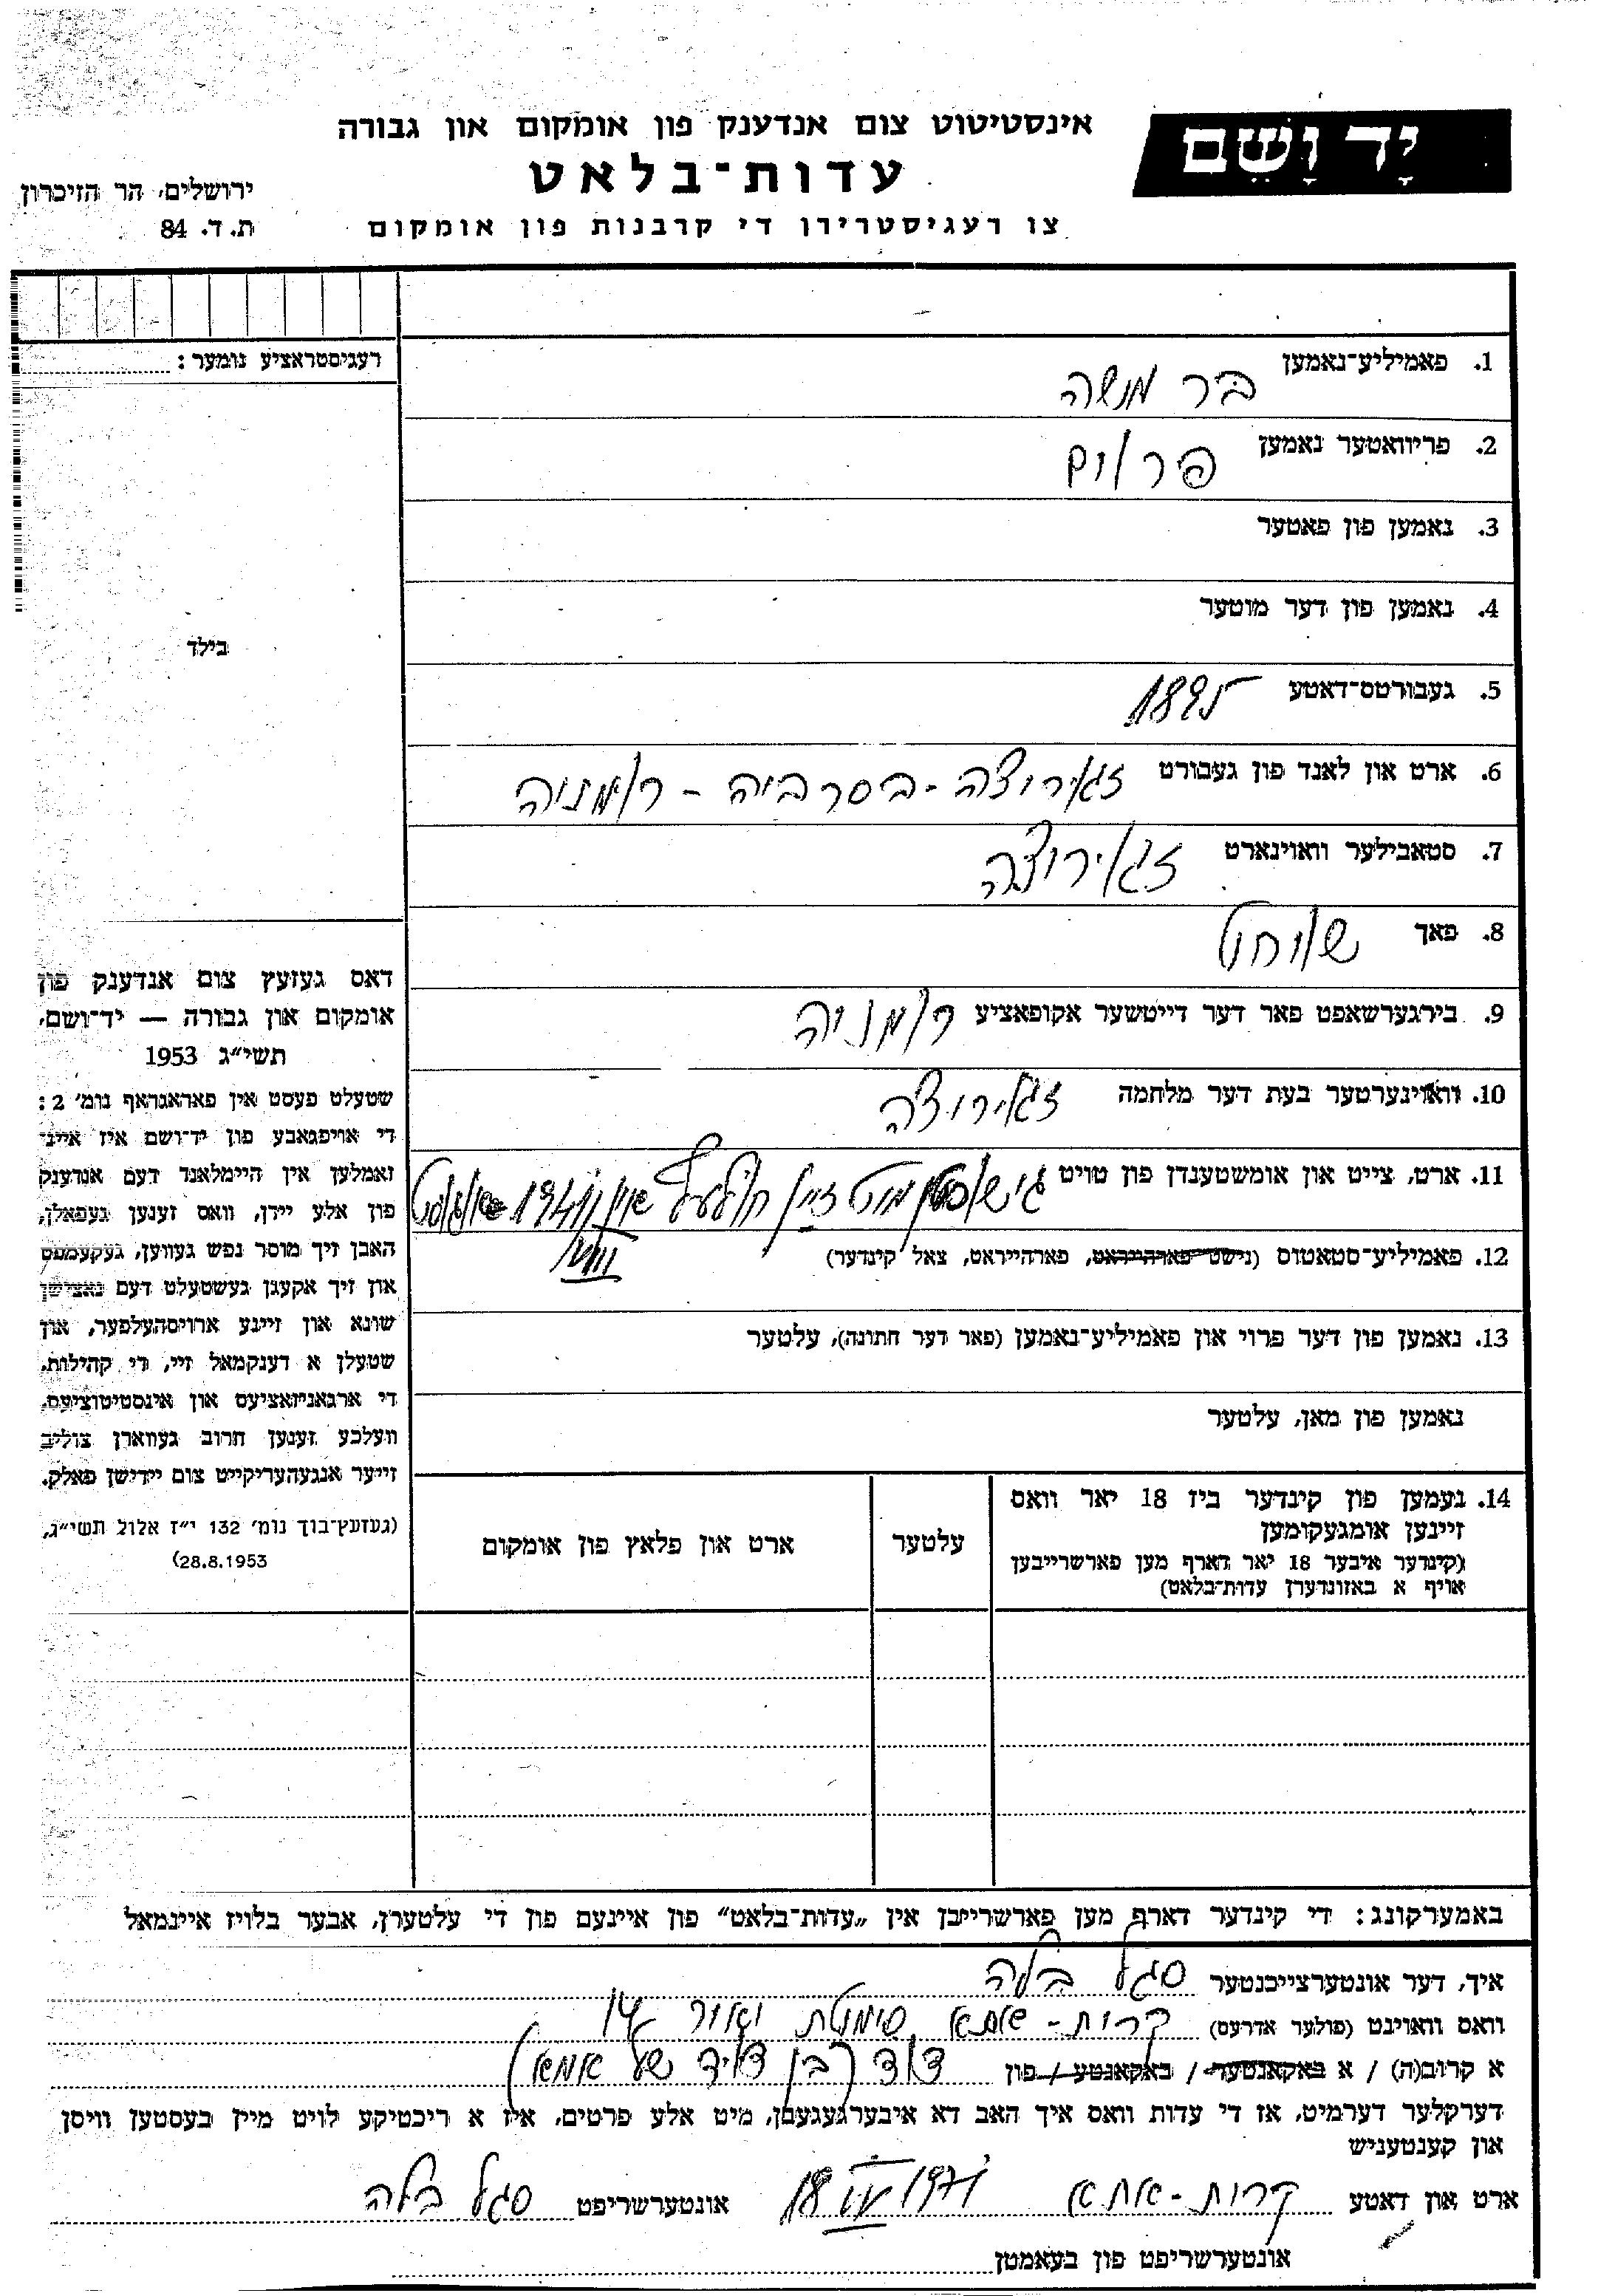 יָד וָשֵׁם
אינסטיטוט צום אנדענק פון אומקום און גבורה
עדות־בלאט
צו רעגיסטרירן די קרבנות פון אומקום
ירושלים, הר הזיכרון
ת. ד. 84
רעגיסטראציע נומער:
1. פאמיליע־נאמען בר מנשה
2. פריוואטער נאמען פרוים
3. נאמען פון פאטער
4. נאמען פון דער מוטער
5. געבורטס־דאטע 1895
6. ארט און לאנד פון געבורט זגוריצה - בסרביה - רומניה
7. סטאבילער וואוינארט זגוריצה
8. פאך שוחט
9. בירגערשאפט פאר דער דייטשער אקופאציע רומניה
10. וואוינערטער בעת דער מלחמה זגוריצה
11. ארט, צייט און אומשטענדן פון טויט
12. פאמיליע־סטאטוס (נישט־פארהייראט, פארהייראט, צאל קינדער)
13. נאמען פון דער פרוי און פאמיליע־נאמען (פאר דער חתונה), עלטער
נאמען פון מאן, עלטער
14. נעמען פון קינדער ביז 18 יאר וואס
זיינען אומגעקומען
(קינדער איבער 18 יאר דארף מען פארשרייבען
אויף א באזונדערן עדות־בלאט)
עלטער
ארט און פלאץ פון אומקום
בילד
דאס געזעץ צום אנדענק פון
אומקום און גבורה — יד־ושם,
תשי״ג 1953
שטעלט פעסט אין פאראגראף נומ׳ 2:
די אויפגאבע פון יד־ושם איז איינ־
זאמלען אין היימלאנד דעם אנדענק
פון אלע יידן, וואס זענען געפאלן,
האבן זיך מוסר נפש געווען, געקעמפט
און זיך אקעגן געשטעלט דעם נאצישן
שונא און זיינע ארויסהעלפער, און
שטעלן א דענקמאל זיי, די קהילות,
די ארגאניזאציעס און אינסטיטוציעס,
וועלכע זענען חרוב געווארן צוליב
זייער אנגעהעריקייט צום יידישן פאלק.
(געזעץ־בוך נומ׳ 132 י״ז אלול תשי״ג,
28.8.1953)
באמערקונג: די קינדער דארף מען פארשרייבן אין „עדות־בלאט״ פון איינעם פון די עלטערן, אבער בלויז איינמאל
איך, דער אונטערצייכנטער סגל בלה
וואס וואוינט (פולער אדרעס) קרית - אתא סימטת 14
א קרוב(ה) / א באקאנטער / באקאנטע / פון דוד (בן דוד של אמא)
דערקלער דערמיט, אז די עדות וואס איך האב דא איבערגעגעבן, מיט אלע פרטים, איז א ריכטיקע לויט מיין בעסטען וויסן
און קענטעניש
ארט און דאטע קרית - אתא 18 1971 אונטערשריפט סגל בלה
אונטערשריפט פון בעאמטן